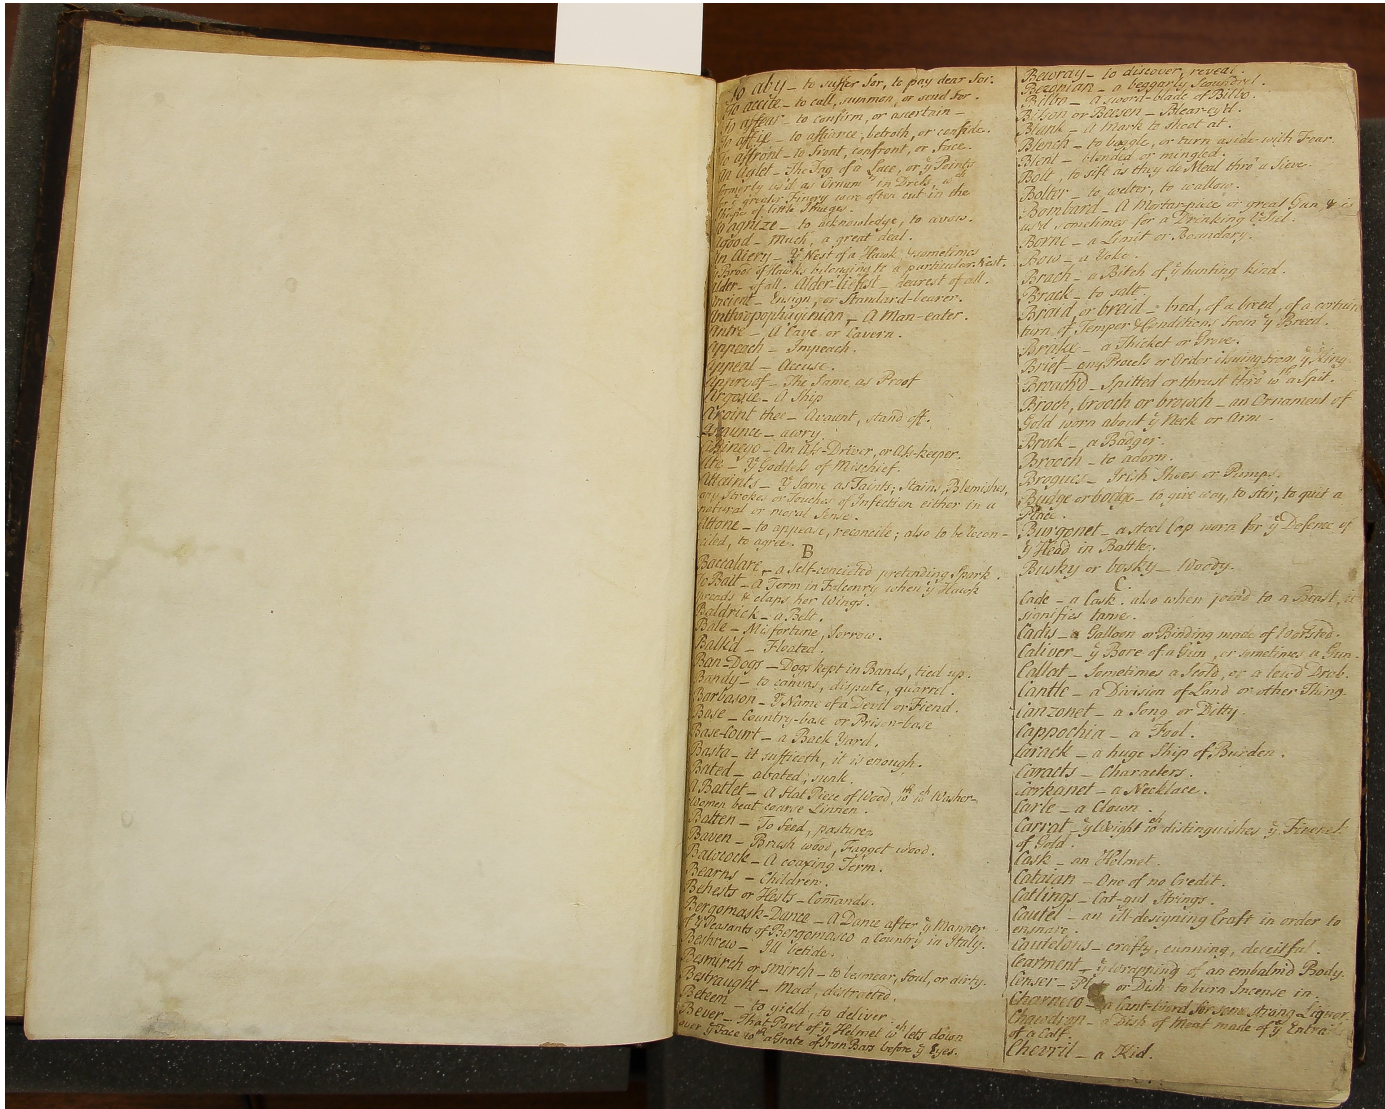 To aby – to suffer for, to pay dear for.
To accite – to call, summon, or send for.
To affear – to confirm, or ascertain –
To affie – to affiance, betroth, or confide.
To affront – to front, confront, or face.
An Aglet – The Tag of a Lace, or yᵉ Points
formerly us'd as Ornamᵗˢ in Dress, wᶜʰ
for yᵉ greater Finery were often cut in the
Shape of little Images.
To agnize – to acknowledge, to avow.
Agood – much, a great deal.
An Aiery – Yᵉ Nest of a Hawk & sometimes
yᵉ Brood of Hawks belonging to a particular Nest.
Alder – of all. Alder-liefest – dearest of all.
Ancient – Ensign, or Standard-bearer.
Anthropophaginian – A Man-eater.
Antre – A Cave or Cavern.
Appeach – Impeach.
Appeal – Accuse.
Approof – The Same as Proof
Argosie – A Ship
Aroint thee – Avaunt, stand off.
Askaunce – awry.
Assinego – An Ass-Driver, or Ass-keeper.
Ate – Yᵉ Goddess of Mischief.
Attaints – Yᵉ Same as Taints; Stains, Blemishes,
any Strokes or Touches of Infection either in a
natural or moral Sense.
Attone – to appease, reconcile; also to be recon-
ciled, to agree.
B
Baccalare – a Self-conceited pretending Spark.
To Bait – A Term in Falconry when yᵉ Hawk
spreads & claps her Wings.
Baldrick – a Belt.
Bale – Misfortune, Sorrow.
Balk'd – Floated.
Ban-Dogs – Dogs kept in Bands, tied up.
Bandy – to canvas, dispute, quarrel.
Barbason – Yᵉ Name of a Devil or Fiend.
Base – Country-base or Prison-base
Base-Court – a Back Yard.
Basta – it sufficeth, it is enough.
Bated – abated, sunk.
A Batlet – A flat Piece of Wood, wᵗʰ wᶜʰ Washer-
women beat coarse Linnen.
Batten – To feed, pasture.
Baven – Brush wood, Faggot wood.
Bawcock – A coaxing Term.
Bearns – Children.
Behests or Hests – Com̄ands.
Bergomask-Dance – A Dance after yᵉ Manner
of yᵉ Peasants of Bergomasco a Country in Italy.
Beshrew – Ill betide.
Besmirch or Smirch – to besmear, foul, or dirty.
Bestraught – Mad, distracted.
Beteem – to yield, to deliver.
Bever – That Part of yᵉ Helmet wᶜʰ lets down
over yᵉ Face wᵗʰ a Grate of Iron Bars before yᵉ Eyes.
Bewray – to discover, reveal.
Bezonian – a beggarly Scoundrel.
Bilbo – a sword-blade of Bilbo.
Bisson or Beeson – Blear-ey'd.
Blank – a Mark to shoot at.
Blench – to boggle, or turn aside with Fear.
Blent – blended or mingled.
Bolt, to sift as they do Meal thro' a Sieve.
Bolter – to welter, to wallow.
Bombard – A Mortar-piece or great Gun, & is
us'd sometimes for a Drinking Vessel.
Borne – a Limit or Boundary.
Bow – a Yoke.
Brach – a Bitch of yᵉ hunting kind.
Brack – to salt
Braid or breid – bred, of a breed, of a certain
turn of Temper & Conditions from yᵉ Breed.
Brake – a Thicket or Grove.
Brief – any Process or Order issuing from yᵉ King.
Broach'd – Spitted or thrust thro' wᵗʰ a Spit.
Broch, brooch or browch – an Ornament of
Gold worn about yᵉ Neck or Arm.
Brock – a Badger.
Brooch – to adorn.
Brogues – Irish Shoes or Pumps.
Budge or bodge – to give way, to stir, to quit a
Place.
Burgonet – a steel Cap worn for yᵉ Defence of
yᵉ Head in Battle.
Busky or bosky – Woody.
C
Cade – a Cask. also when join'd to a Beast, it
signifies tame.
Cadis – a Galloon or Binding made of Worsted.
Caliver – yᵉ Bore of a Gun, or sometimes a Gun.
Callat – Sometimes a Scold, or a lewd Drab.
Cantle – a Division of Land or other Thing
Canzonet – a Song or Ditty.
Cappochia – a Fool.
Carack – a huge Ship of Burden.
Caracts – Characters.
Carkanet – a Necklace.
Carle – a Clown.
Carrat – yᵉ Weight wᶜʰ distinguishes yᵉ Fineness
of Gold.
Cask – an Helmet.
Cataian – One of no Credit.
Catlings – Cat-gut Strings.
Cautel – an ill-designing Craft in order to
ensnare.
Cautelous – crafty, cunning, deceitful.
Cearment – yᵉ Wrapping of an embalm'd Body.
Censer – or Dish to burn Incense in.
Charneco – a Cant-Word for some strong Liquor.
Chawdron – a Dish of Meat made of yᵉ Entrails
of a Calf.
Chevril – a Kid.